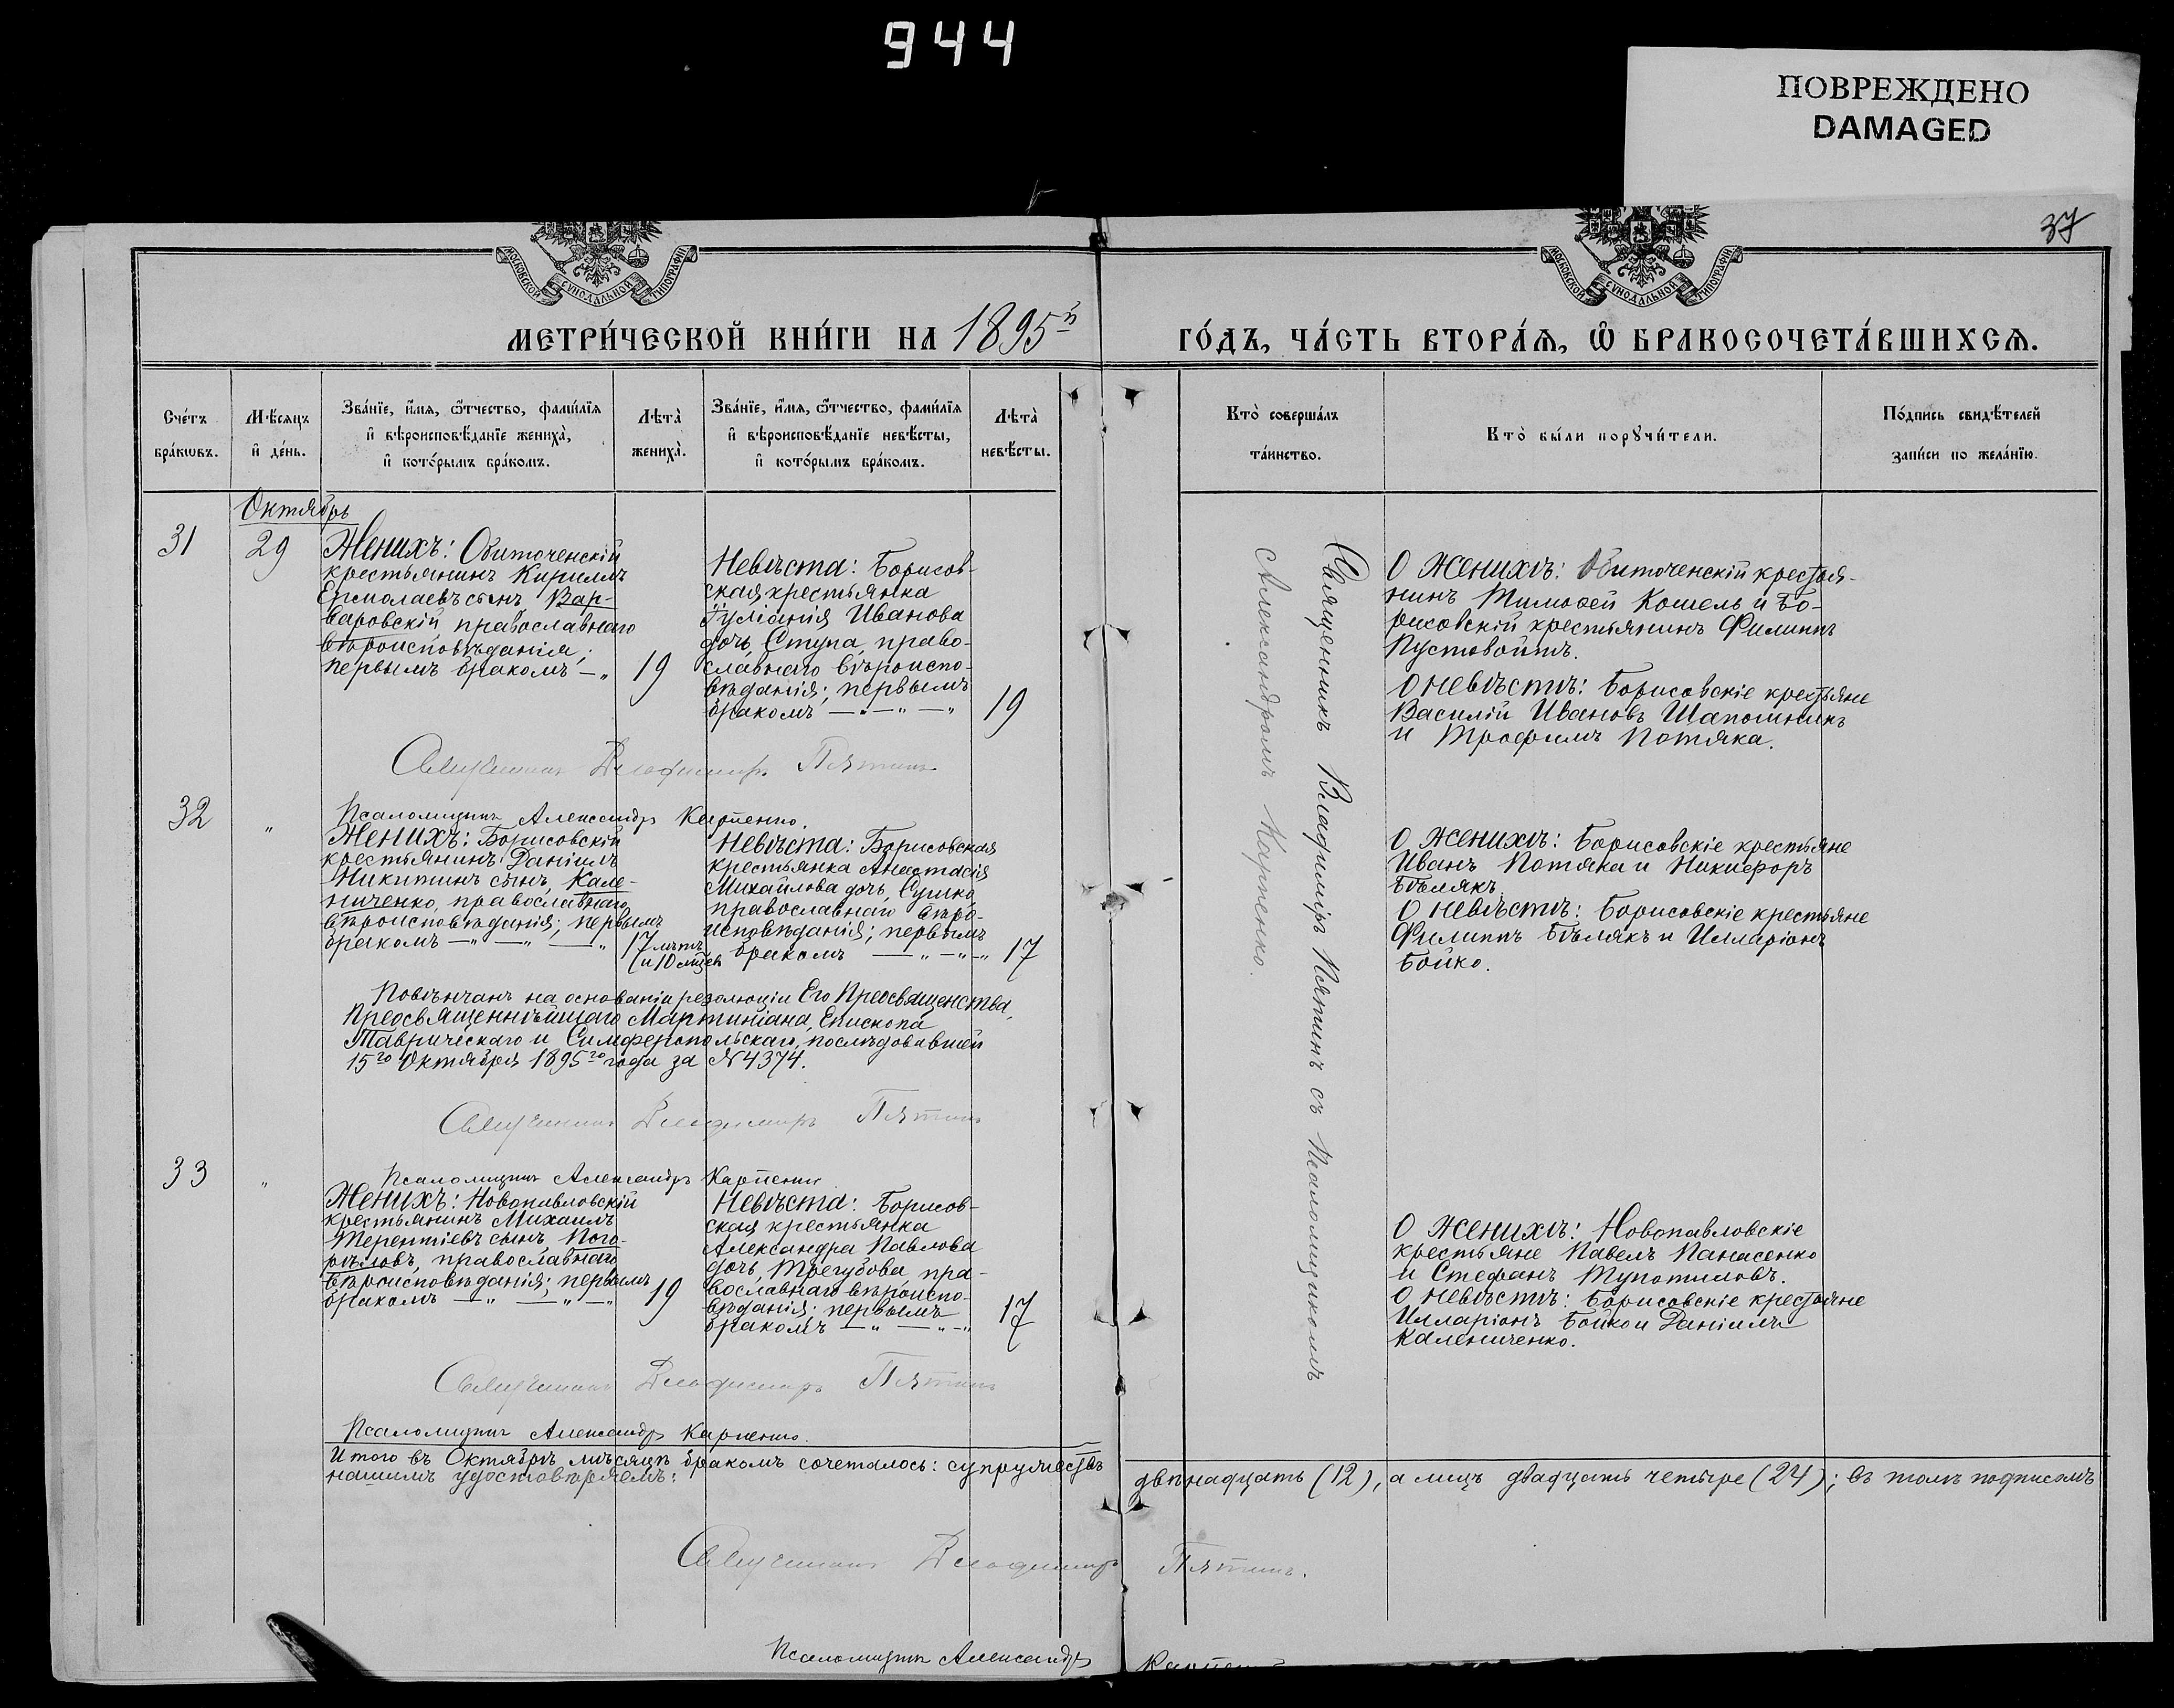 944
ПОВРЕЖДЕНО
DAMAGED
37
МОСКОВСКОЙ СѴНОДАЛЬНОЙ ТИПОГРАФІИ
МОСКОВСКОЙ СѴНОДАЛЬНОЙ ТИПОГРАФІИ
МЕТРИ́ЧЕСКОЙ КНИ́ГИ НА 1895й
ГО́ДЪ, ЧА́СТЬ ВТОРА́Я, Ѡ БРАКОСОЧЕТА́ВШИХСЯ.
Сче́тъ
бра́кѡвъ.
Мѣ́сяцъ
и де́нь.
Зва́нїе, и́мя, ѻ҆́тчество, фами́лїя
и вѣроисповѣ́данїе жениха̀,
и кото́рымъ бра́комъ.
Лѣта̀
жениха̀.
Зва́нїе, и́мя, ѻ҆́тчество, фами́лїя
и вѣроисповѣ́данїе невѣ́сты,
и кото́рымъ бра́комъ.
Лѣта̀
невѣ́сты.
Кто̀ соверша́лъ
та́инство.
Кто̀ бы́ли порꙋчи́тели.
По́дпись свидѣ́телей
за́писи по жела́нїю.
Октябрь
31
29
Женихъ: Обиточенскій
крестьянинъ Кириллъ
Ермолаевъ сынъ Вар-
варовскій православнаго
вѣроисповѣданія;
первымъ бракомъ — „
19
Невѣста: Борисов-
ская крестьянка
Іуліанія Иванова
дочь, Ступа, право-
славнаго вѣроиспо-
вѣданія; первымъ
бракомъ — „ — „ — „
19
Священникъ Владимиръ Пятинъ
Псаломщикъ Александръ Карпенко.
Священникъ Владиміръ Пятинъ съ Псаломщикомъ
Александромъ Карпенко.
О Женихѣ: Обиточенскій крестья-
нинъ Тимоѳей Кошель и Бо-
рисовскій крестьянинъ Филиппъ
Пустовойтъ.
О невѣстѣ: Борисовскіе крестьяне
Василій Ивановъ Шапошникъ
и Трофимъ Потяка.
32
„
Женихъ: Борисовскій
крестьянинъ Даніилъ
Никитинъ сынъ, Кале-
ниченко, православнаго
вѣроисповѣданія; первымъ
бракомъ — „ — „ — „
17 лѣтъ
(и 10 мцев
Невѣста: Борисовская
крестьянка Анастасія
Михайлова дочь, Сушко,
православнаго вѣро-
исповѣданія; первымъ
бракомъ — „ — „ — „
17
О Женихѣ: Борисовскіе крестьяне
Иванъ Потяка и Никифоръ
Бѣлякъ.
О невѣстѣ: Борисовскіе крестьяне
Филиппъ Бѣлякъ и Илларіонъ
Бойко.
Повѣнчанъ на основаніи резолюціи Его Преосвященства,
Преосвященнѣйшаго Мартиніана, Епископа
Таврическаго и Симферопольскаго, послѣдовавшей
15го Октября 1895го года за №4374.
Священникъ Владимиръ Пятинъ
Псаломщикъ Александръ Карпенко
33
„
Женихъ: Новопавловскій
крестьянинъ Михаилъ
Терентіевъ сынъ Пого-
рѣловъ, православнаго
вѣроисповѣданія; первымъ
бракомъ — „ — „ — „
19
Невѣста: Борисов-
ская крестьянка
Александра Павлова
дочь, Трегубова, пра-
вославнаго вѣроиспо-
вѣданія; первымъ
бракомъ — „ — „ — „
17
О Женихѣ: Новопавловскіе
крестьяне Павелъ Панасенко
и Стефанъ Тупотиловъ.
О невѣстѣ: Борисовскіе крестьяне
Илларіонъ Бойко и Даніилъ
Калениченко.
Священникъ Владимиръ Пятинъ
Псаломщикъ Александръ Карпенко.
Итого въ Октябрѣ мѣсяцѣ бракомъ сочеталось: супружествъ двѣнадцать (12), а лицъ двадцать четыре (24); въ томъ подписомъ
нашимъ удостовѣряемъ:
Священникъ Владимиръ Пятинъ.
Псаломщикъ Александръ Карпенко